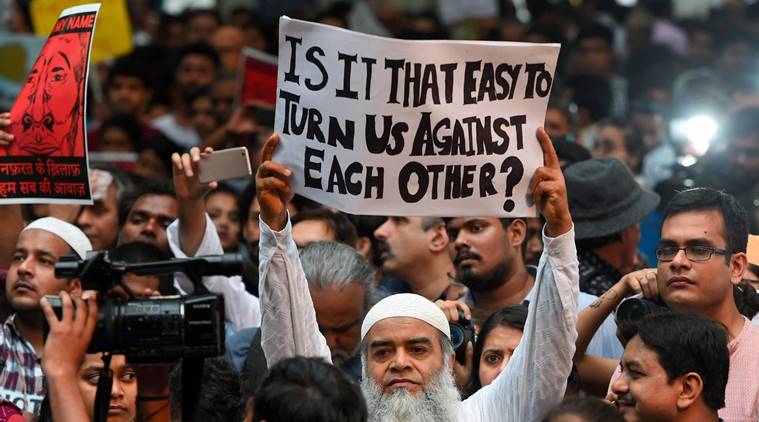 MY NAME
नफ़रत के खिलाफ़
हम सब की आवाज़
IS IT THAT EASY TO
TURN US AGAINST
EACH OTHER?